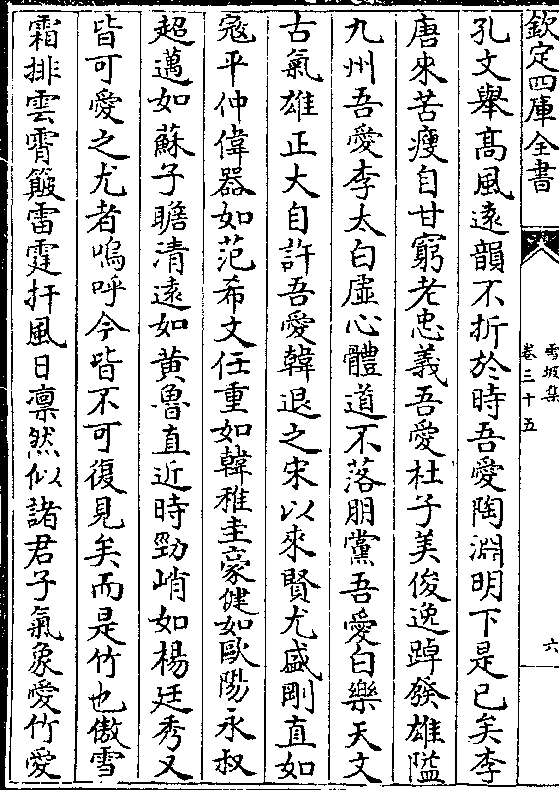 欽定四庫全書
雪坡集
卷三十五
六
孔文舉髙風逺韻不折於時吾愛陶淵明下是已矣李
唐來苦瘦自甘窮老忠義吾愛杜子美俊逸踔發雄隘
九州吾愛李太白虚心體道不落朋黨吾愛白樂天文
古氣雄正大自許吾愛韓退之宋以來賢尤盛剛直如
宼平仲偉器如范希文任重如韓稚圭豪健如歐陽永叔
超邁如蘇子瞻清逺如黄魯直近時勁峭如楊廷秀又
皆可愛之尤者嗚呼今皆不可復見矣而是竹也傲雪
霜排雲霄簸雷霆扞風日凛然似諸君子氣象愛竹愛